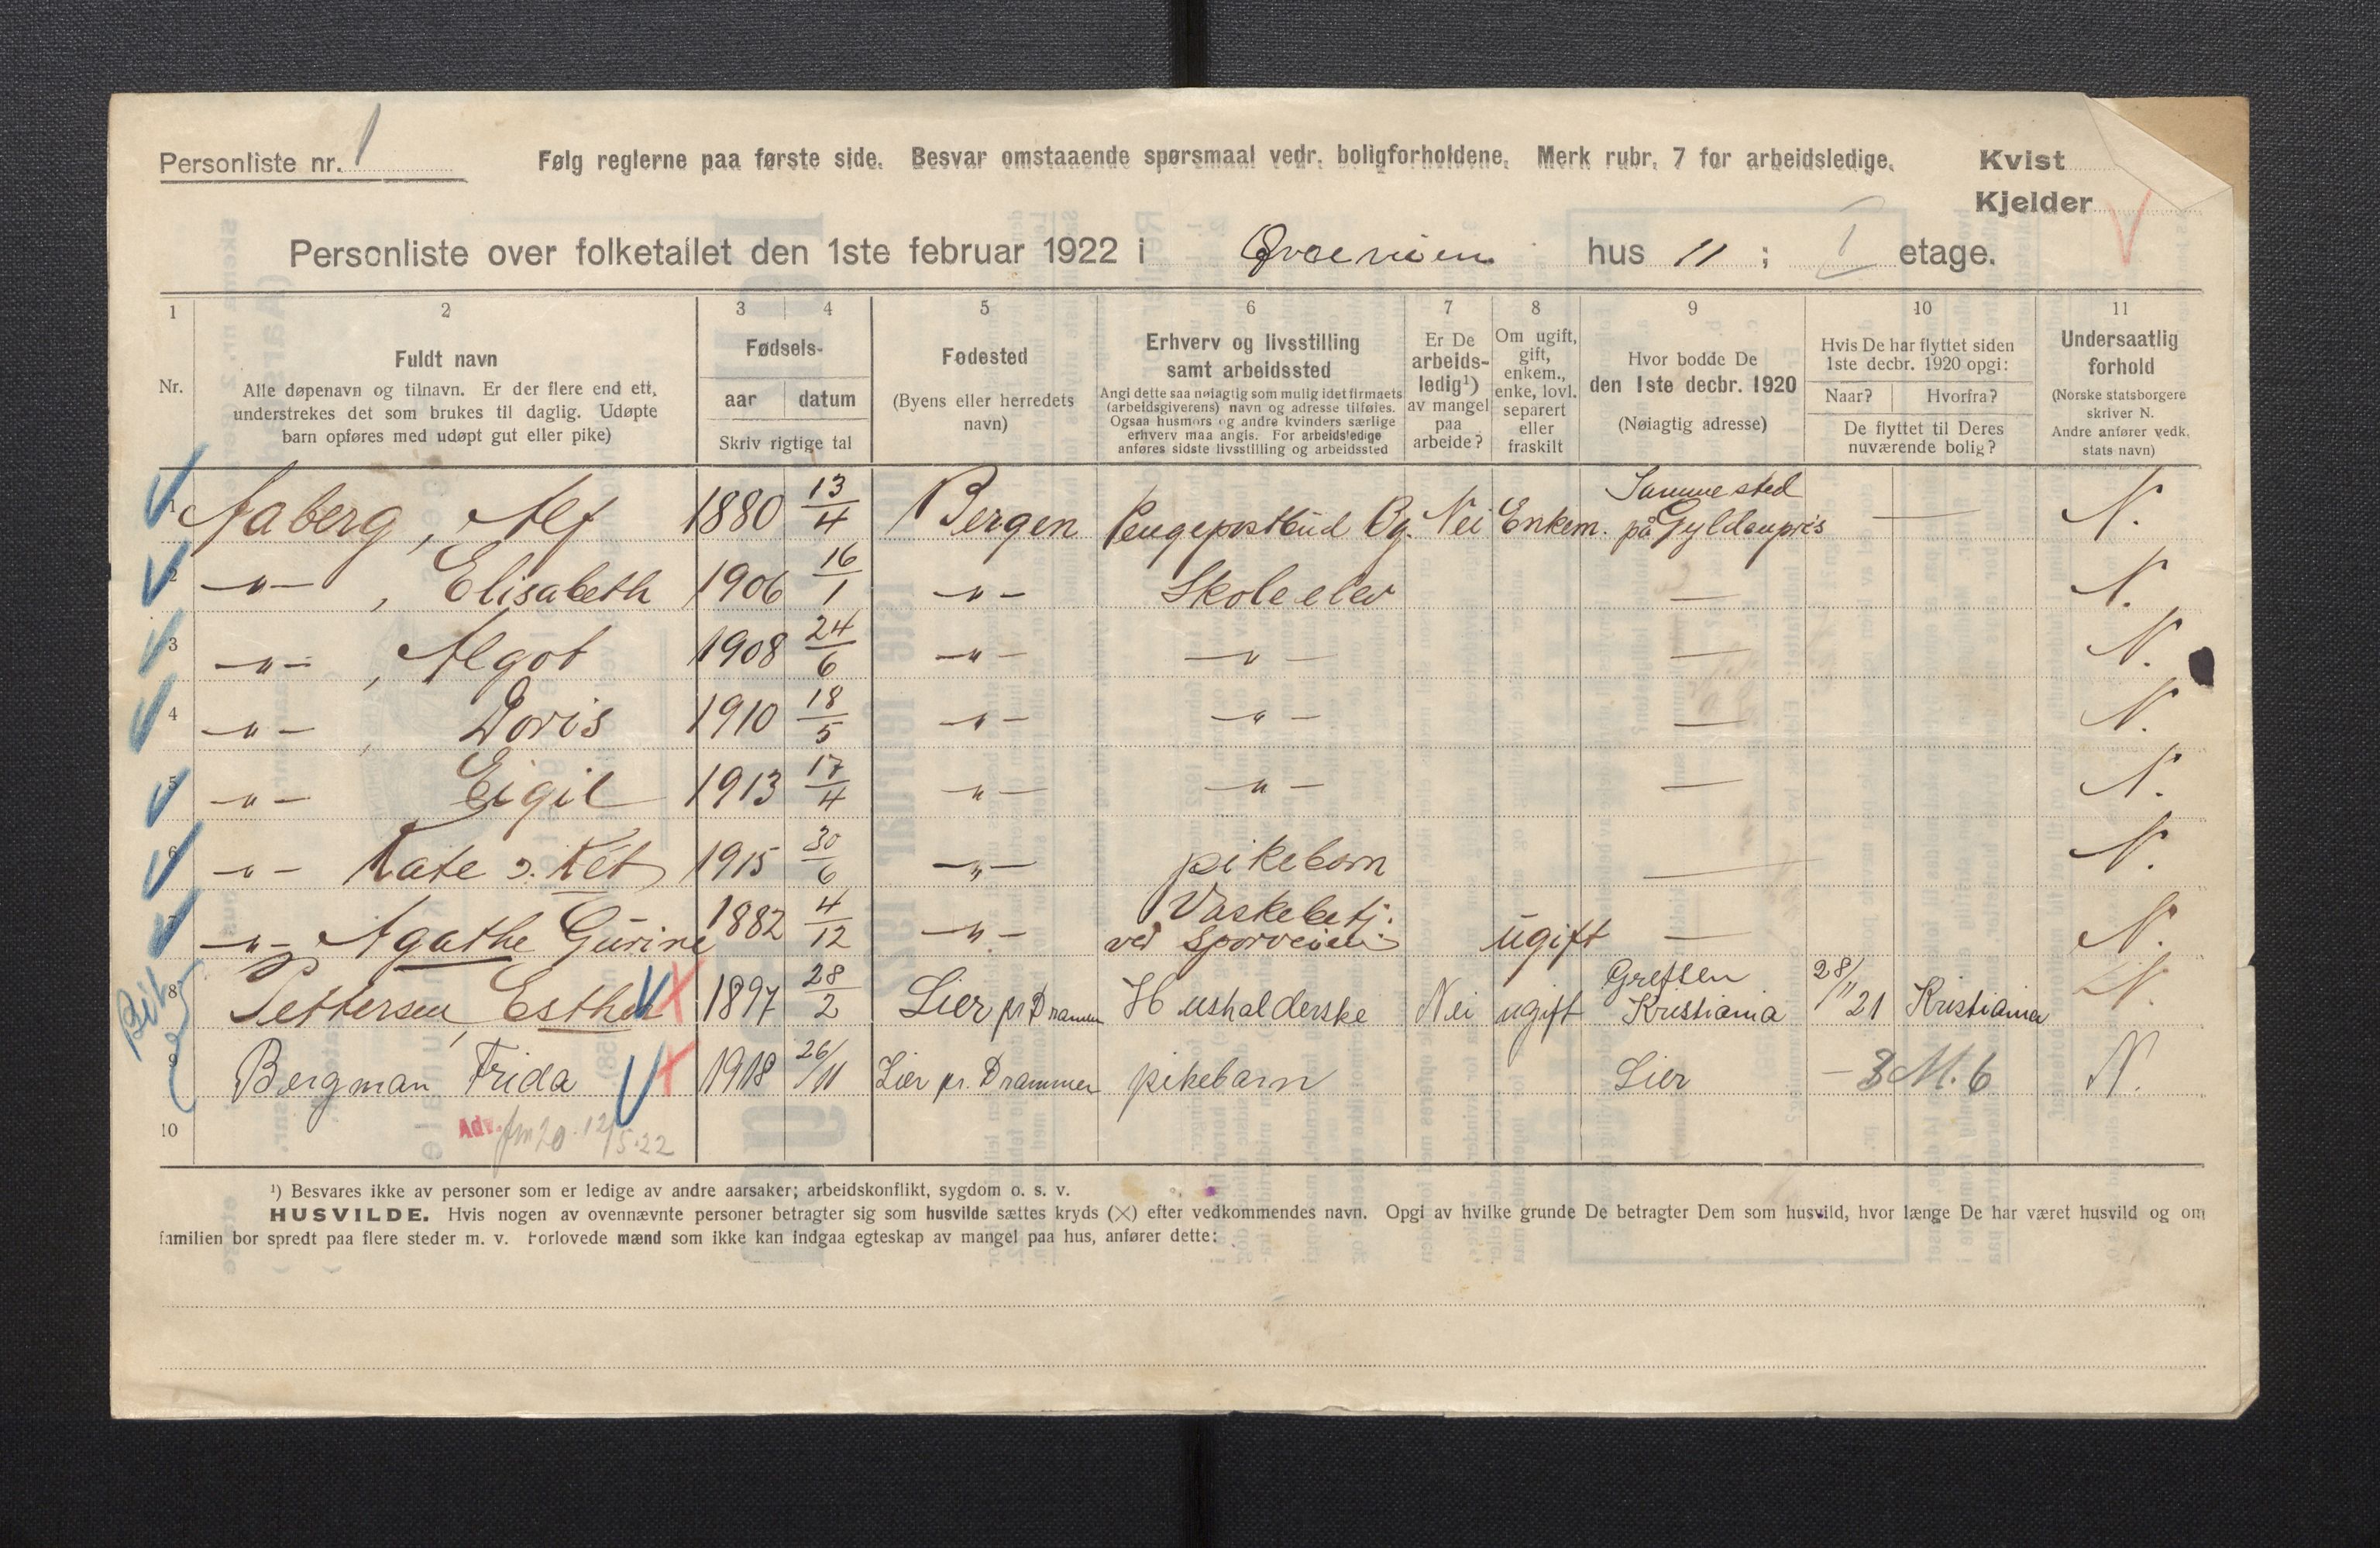 Personliste nr. 1
Følg reglerne paa første side. Besvar omstaaende spørsmaal vedr. boligforholdene. Merk rubr. 7 for arbeidsledige.
Kvist
Kjelder
Personliste over folketallet den 1ste februar 1922 i hus 11 ; I etage.
1 2 3 4 5 6 7 8 9 10 11
Nr.
Fuldt navn
Alle døpenavn og tilnavn. Er der flere end ett,
understrekes det som brukes til daglig. Udøpte
barn opføres med udøpt gut eller pike)
Fødsels-
aar datum
Skriv rigtige tal
Fødested
(Byens eller herredets
navn)
Erhverv og livsstilling
samt arbeidssted
Angi dette saa nøiagtig som mulig idet firmaets
(arbeidsgiverens) navn og adresse tilføies.
Ogsaa husmors og andre kvinders særlige
erhverv maa angis. For arbeidsledige
anføres sidste livsstilling og arbeidssted
Er De
arbeids-
ledig¹)
av mangel
paa
arbeide?
Om ugift,
gift,
enkem.,
enke, lovl.
separert
eller
fraskilt
Hvor bodde De
den 1ste decbr. 1920
(Nøiagtig adresse)
Hvis De har flyttet siden
1ste decbr. 1920 opgi:
Naar? Hvorfra?
De flyttet til Deres
nuværende bolig?
Undersaatlig
forhold
(Norske statsborgere
skriver N.
Andre anfører vedk.
stats navn)
1 Aaberg, Alf 1880 13/4 Bergen Pengepostbud Bg. Nei Enkem. Samme sted på Gyldenpris — N.
2 -"- , Elisabeth 1906 16/1 -"- Skoleelev — N.
3 -"- , Algot 1908 24/6 -"- -"- — N.
4 -"- , Doris 1910 18/5 -"- -"- — N.
5 -"- Eigil 1913 17/4 -"- -"- — N.
6 -"- Kate ɔ: Két 1915 30/6 -"- pikebarn — N.
7 -"- Agathe Gurine 1882 4/12 -"- Vaskebetj. ved Sporveien ugift — N.
8 Pettersen, Esther 1897 28/2 Lier pr Drammen Husholderske Nei ugift Grefsen Kristiania 28/11 21 Kristiania N.
9 Bergman Frida 1918 26/11 Lier pr. Drammen pikebarn Lier — 3 M. 6 N.
10
Adv. 12/5.22
¹) Besvares ikke av personer som er ledige av andre aarsaker; arbeidskonflikt, sygdom o. s. v.
HUSVILDE. Hvis nogen av ovennævnte personer betragter sig som husvilde sættes kryds (×) efter vedkommendes navn. Opgi av hvilke grunde De betragter Dem som husvild, hvor længe De har været husvild og om
familien bor spredt paa flere steder m. v. Forlovede mænd som ikke kan indgaa egteskap av mangel paa hus, anfører dette: